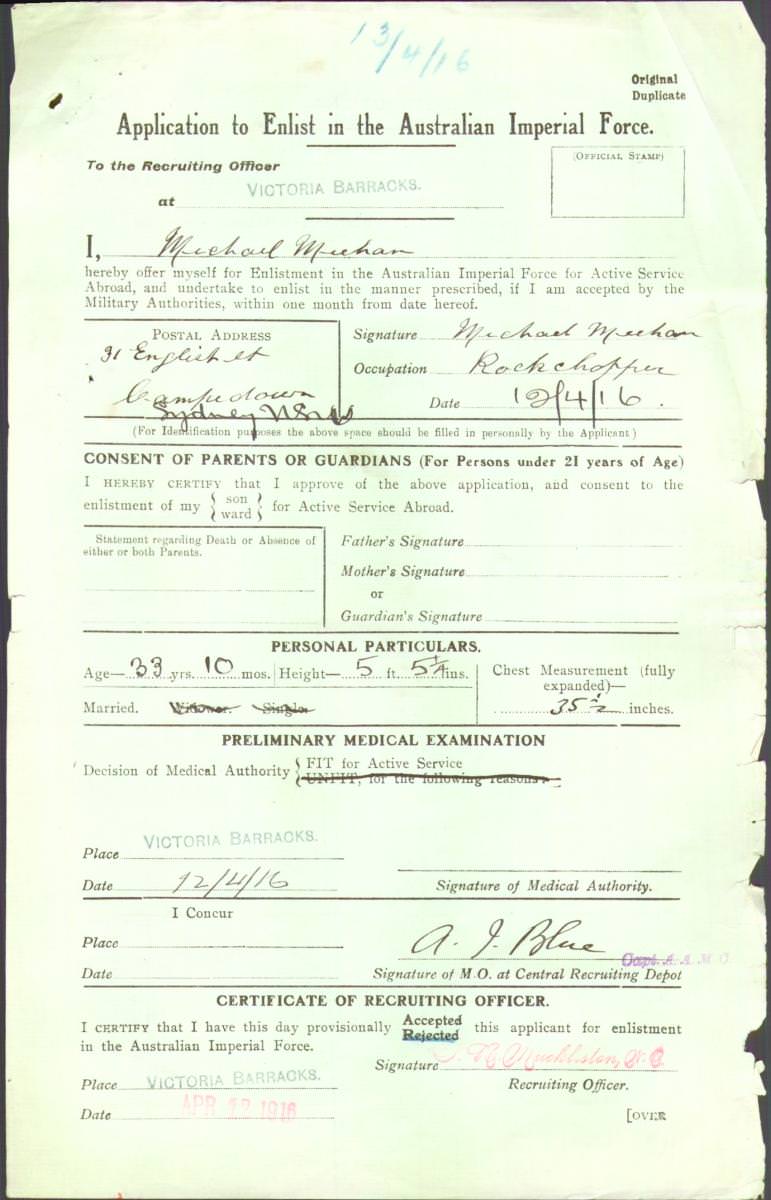 13/4/16
Original
Duplicate
Application to Enlist in the Australian Imperial Force.
To the Recruiting Officer
(OFFICIAL STAMP)
at VICTORIA BARRACKS.
I, Michael Meehan
hereby offer myself for Enlistment in the Australian Imperial Force for Active Service
Abroad, and undertake to enlist in the manner prescribed, if I am accepted by the
Military Authorities, within one month from date hereof.
POSTAL ADDRESS
31 English st
Campedown
Sydney NSW
Signature Michael Meehan
Occupation Rockchopper
Date 12/4/16.
(For Identification purposes the above space should be filled in personally by the Applicant)
CONSENT OF PARENTS OR GUARDIANS (For Persons under 21 years of Age)
I HEREBY CERTIFY that I approve of the above application, and consent to the
enlistment of my { son ward } for Active Service Abroad.
Statement regarding Death or Absence of
either or both Parents.
Father's Signature
Mother's Signature
or
Guardian's Signature
PERSONAL PARTICULARS.
Age—33 yrs. 10 mos. Height—5 ft. 5¼ ins.
Chest Measurement (fully
expanded)—
35½ inches.
Married. Widower. Single.
PRELIMINARY MEDICAL EXAMINATION
Decision of Medical Authority { FIT for Active Service
UNFIT, for the following reasons—
Place VICTORIA BARRACKS.
Date 12/4/16
Signature of Medical Authority.
I Concur
Place
A. J. Blue
Capt. A. A. M. C
Date
Signature of M.O. at Central Recruiting Depot
CERTIFICATE OF RECRUITING OFFICER.
I CERTIFY that I have this day provisionally Accepted Rejected this applicant for enlistment
in the Australian Imperial Force.
Signature
Place VICTORIA BARRACKS.
Recruiting Officer.
Date APR 12 1916
[OVER